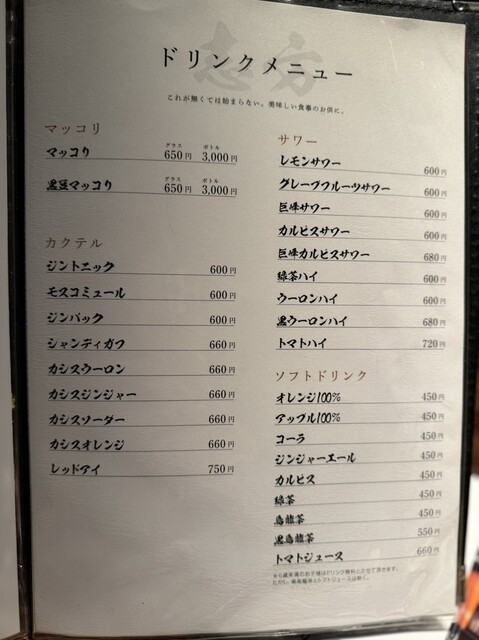 志方
ドリンクメニュー
これが無くては始まらない。美味しい食事のお供に。
マッコリ
マッコリ グラス 650円 ボトル 3,000円
黒豆マッコリ グラス 650円 ボトル 3,000円
カクテル
ジントニック 600円
モスコミュール 600円
ジンバック 600円
シャンディガフ 660円
カシスウーロン 660円
カシスジンジャー 660円
カシスソーダー 660円
カシスオレンジ 660円
レッドアイ 750円
サワー
レモンサワー 600円
グレープフルーツサワー 600円
巨峰サワー 600円
カルピスサワー 600円
巨峰カルピスサワー 680円
緑茶ハイ 600円
ウーロンハイ 600円
黒ウーロンハイ 680円
トマトハイ 720円
ソフトドリンク
オレンジ100% 450円
アップル100% 450円
コーラ 450円
ジンジャーエール 450円
カルピス 450円
緑茶 450円
烏龍茶 450円
黒烏龍茶 550円
トマトジュース 660円
※6歳未満のお子様はドリンク無料とさせて頂きます。
ただし、黒烏龍茶とトマトジュースは除く。